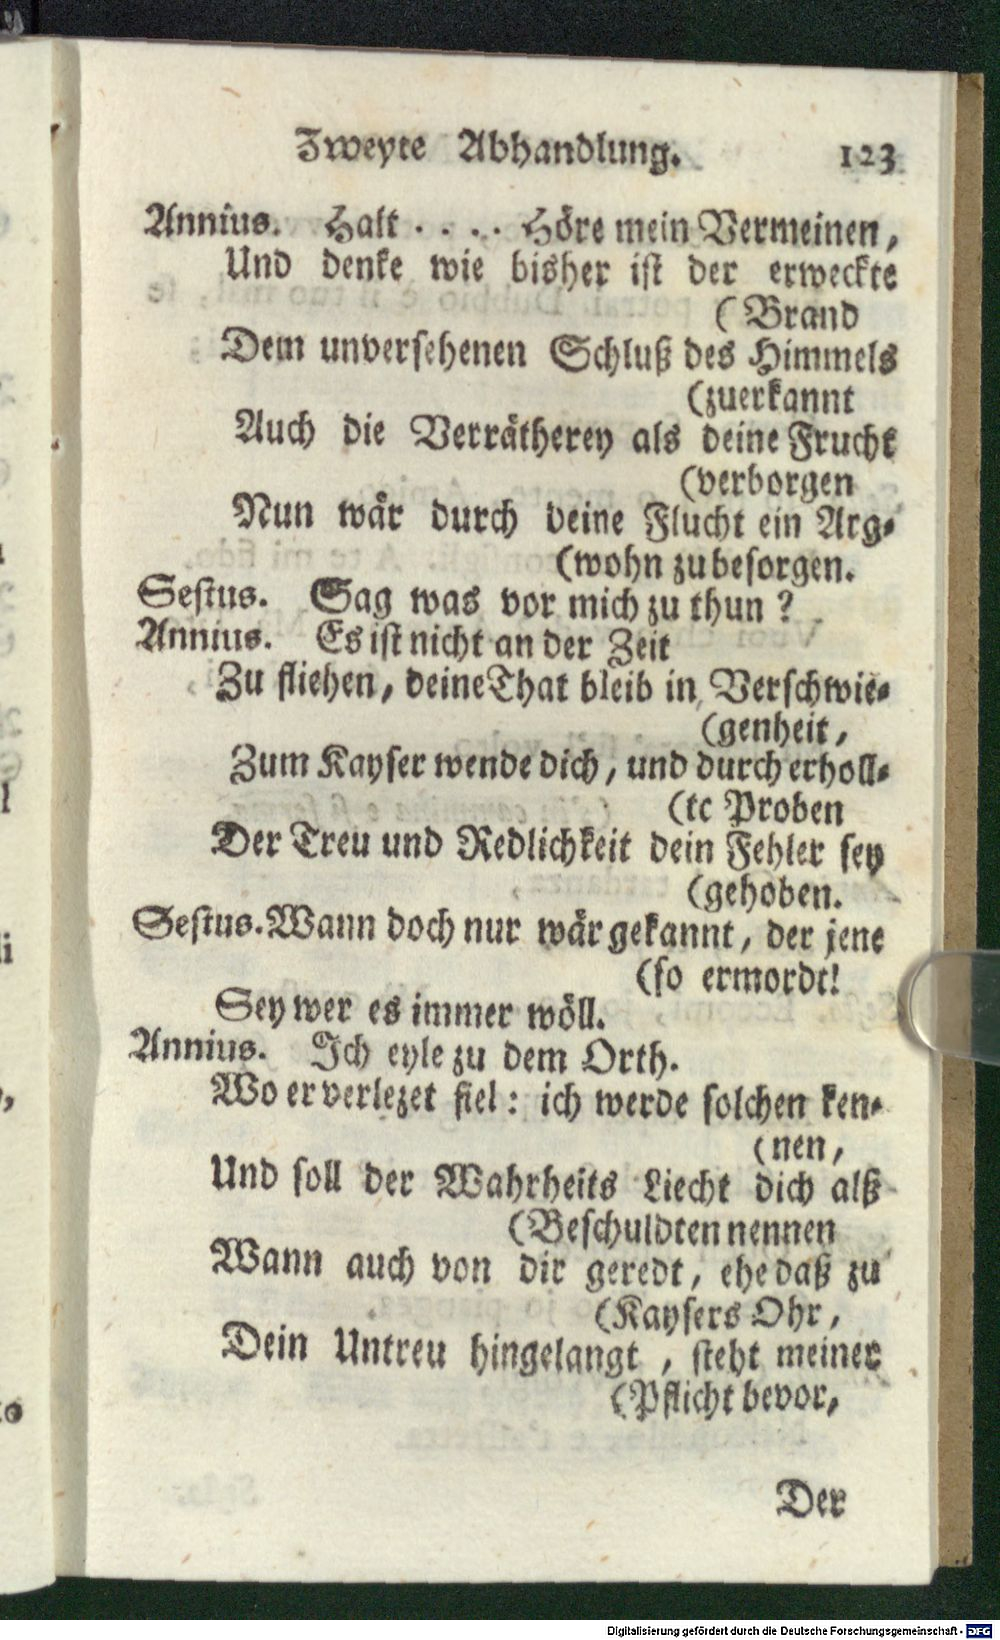 Zweyte Abhandlung. 123
Annius. Halt . . . . Höre mein Vermeinen,
Und denke wie bisher ist der erweckte
(Brand
Dem unversehenen Schluß des Himmels
(zuerkannt
Auch die Verrätherey als deine Frucht
(verborgen
Nun wär durch deine Flucht ein Arg-
(wohn zu besorgen.
Sestus. Sag was vor mich zu thun?
Annius. Es ist nicht an der Zeit
Zu fliehen, deine That bleib in Verschwie-
(genheit,
Zum Kayser wende dich, und durch erholl-
(te Proben
Der Treu und Redlichkeit dein Fehler sey
(gehoben.
Sestus. Wann doch nur wär gekannt, der jene
(so ermordt!
Sey wer es immer wöll.
Annius. Ich eyle zu dem Orth.
Wo er verlezet fiel: ich werde solchen ken-
(nen,
Und soll der Wahrheits Liecht dich alß
(Beschuldten nennen
Wann auch von dir geredt, ehe daß zu
(Kaysers Ohr,
Dein Untreu hingelangt, steht meiner
(Pflicht bevor,
Der
Digitalisierung gefördert durch die Deutsche Forschungsgemeinschaft - DFG